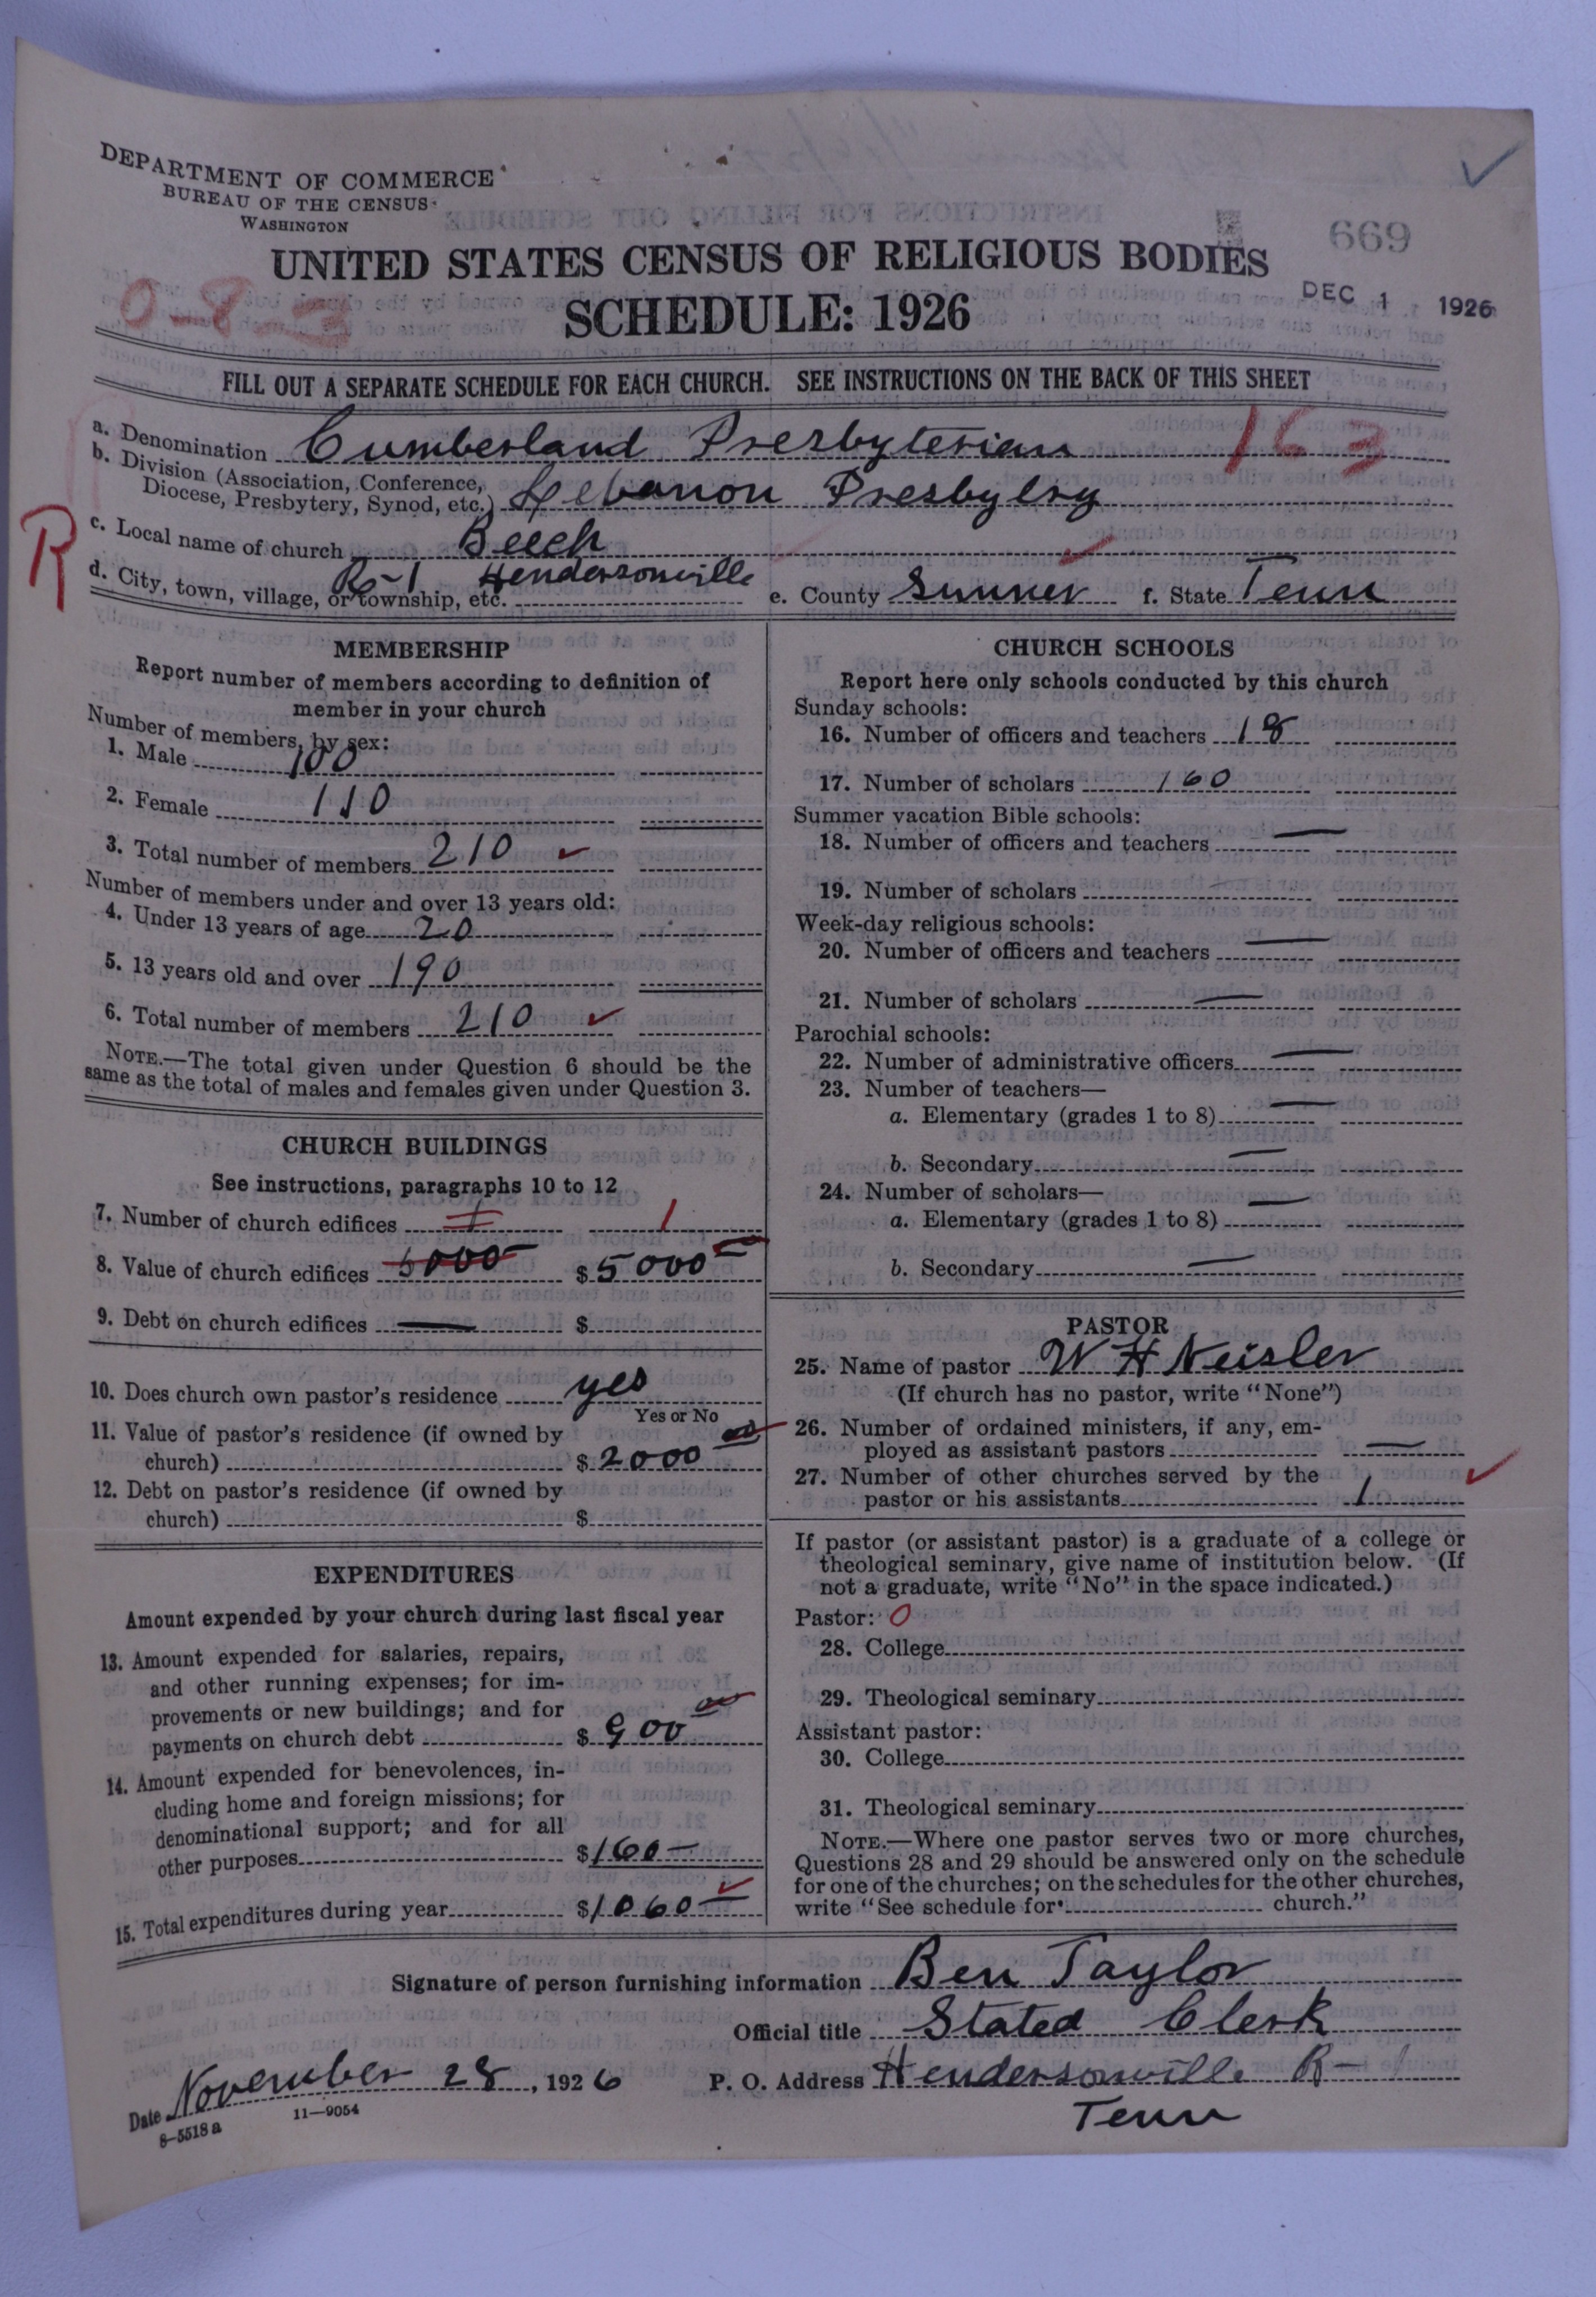 DEPARTMENT OF COMMERCE
BUREAU OF THE CENSUS
WASHINGTON
669
UNITED STATES CENSUS OF RELIGIOUS BODIES
SCHEDULE: 1926
DEC 1 1926
0-8-3
FILL OUT A SEPARATE SCHEDULE FOR EACH CHURCH. SEE INSTRUCTIONS ON THE BACK OF THIS SHEET
a. Denomination Cumberland Presbyterian 163
b. Division (Association, Conference,
Diocese, Presbytery, Synod, etc.) Lebanon Presbytry
R
c. Local name of church Beech
d. City, town, village, or township, etc. R-1 Hendersonville e. County Sumner f. State Tenn
MEMBERSHIP
Report number of members according to definition of
member in your church
Number of members, by sex:
1. Male 100
2. Female 110
3. Total number of members 210
Number of members under and over 13 years old:
4. Under 13 years of age 20
5. 13 years old and over 190
6. Total number of members 210
NOTE.—The total given under Question 6 should be the
same as the total of males and females given under Question 3.
CHURCH BUILDINGS
See instructions, paragraphs 10 to 12
7. Number of church edifices 1 1
8. Value of church edifices 5000 $5000
9. Debt on church edifices — $
10. Does church own pastor's residence yes
Yes or No
11. Value of pastor's residence (if owned by
church) $2000 00
12. Debt on pastor's residence (if owned by
church) $
EXPENDITURES
Amount expended by your church during last fiscal year
13. Amount expended for salaries, repairs,
and other running expenses; for im-
provements or new buildings; and for
payments on church debt $900 00
14. Amount expended for benevolences, in-
cluding home and foreign missions; for
denominational support; and for all
other purposes $160—
15. Total expenditures during year $1060—
CHURCH SCHOOLS
Report here only schools conducted by this church
Sunday schools:
16. Number of officers and teachers 18
17. Number of scholars 160
Summer vacation Bible schools:
18. Number of officers and teachers —
19. Number of scholars —
Week-day religious schools:
20. Number of officers and teachers —
21. Number of scholars —
Parochial schools:
22. Number of administrative officers —
23. Number of teachers—
a. Elementary (grades 1 to 8) —
b. Secondary —
24. Number of scholars—
a. Elementary (grades 1 to 8) —
b. Secondary —
PASTOR
25. Name of pastor W H Neisler
(If church has no pastor, write "None")
26. Number of ordained ministers, if any, em-
ployed as assistant pastors —
27. Number of other churches served by the
pastor or his assistants 1
If pastor (or assistant pastor) is a graduate of a college or
theological seminary, give name of institution below. (If
not a graduate, write "No" in the space indicated.)
Pastor: 0
28. College
29. Theological seminary
Assistant pastor:
30. College
31. Theological seminary
NOTE.—Where one pastor serves two or more churches,
Questions 28 and 29 should be answered only on the schedule
for one of the churches; on the schedules for the other churches,
write "See schedule for church."
Signature of person furnishing information Ben Taylor
Official title Stated Clerk
Date November 28, 1926 P. O. Address Hendersonville R-1
Tenn
8-5518 a 11—9054